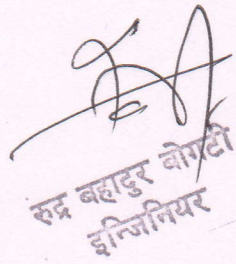 रुद्र बहादुर बोगटी
इन्जिनियर